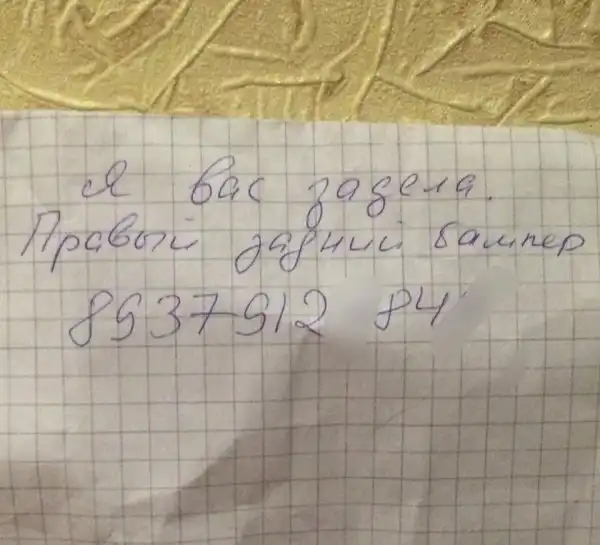 Я вас задела.
Правый задний бампер
8937 912 84